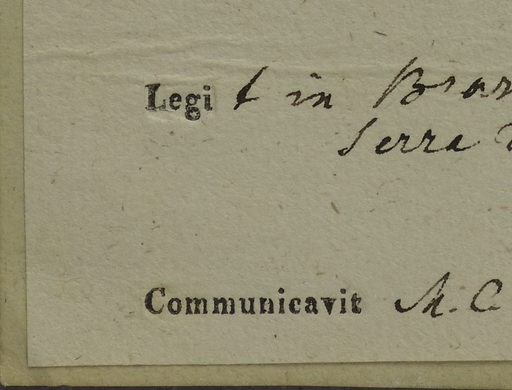 Legit in Bras
Serra
Communicavit M. C